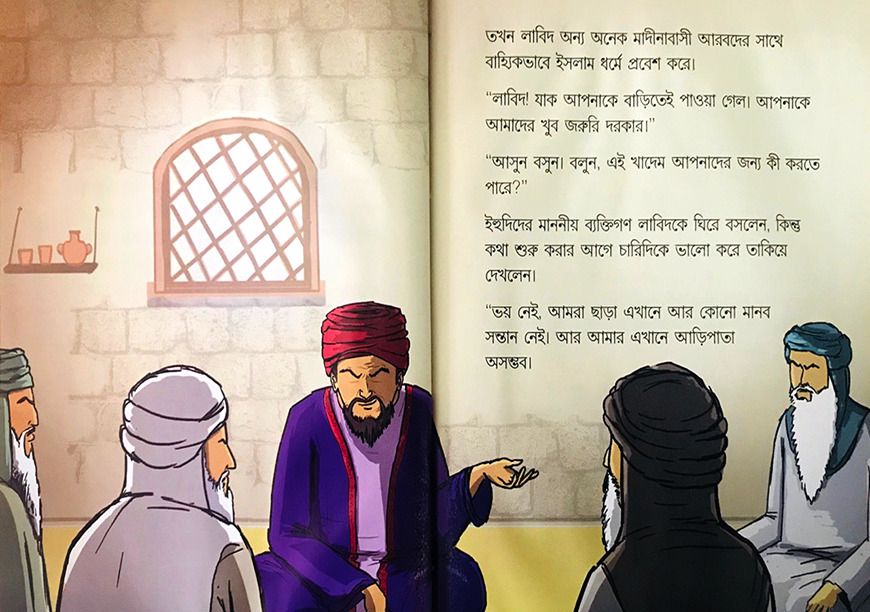 তখন লাবিদ অন্য অনেক মাদীনাবাসী আরবদের সাথে
বাহ্যিকভাবে ইসলাম ধর্মে প্রবেশ করে।
“লাবিদ! যাক আপনাকে বাড়িতেই পাওয়া গেল। আপনাকে
আমাদের খুব জরুরি দরকার।”
“আসুন বসুন। বলুন, এই খাদেম আপনাদের জন্য কী করতে
পারে?”
ইহুদিদের মাননীয় ব্যক্তিগণ লাবিদকে ঘিরে বসলেন, কিন্তু
কথা শুরু করার আগে চারিদিকে ভালো করে তাকিয়ে
দেখলেন।
“ভয় নেই, আমরা ছাড়া এখানে আর কোনো মানব
সন্তান নেই। আর আমার এখানে আড়িপাতা
অসম্ভব।